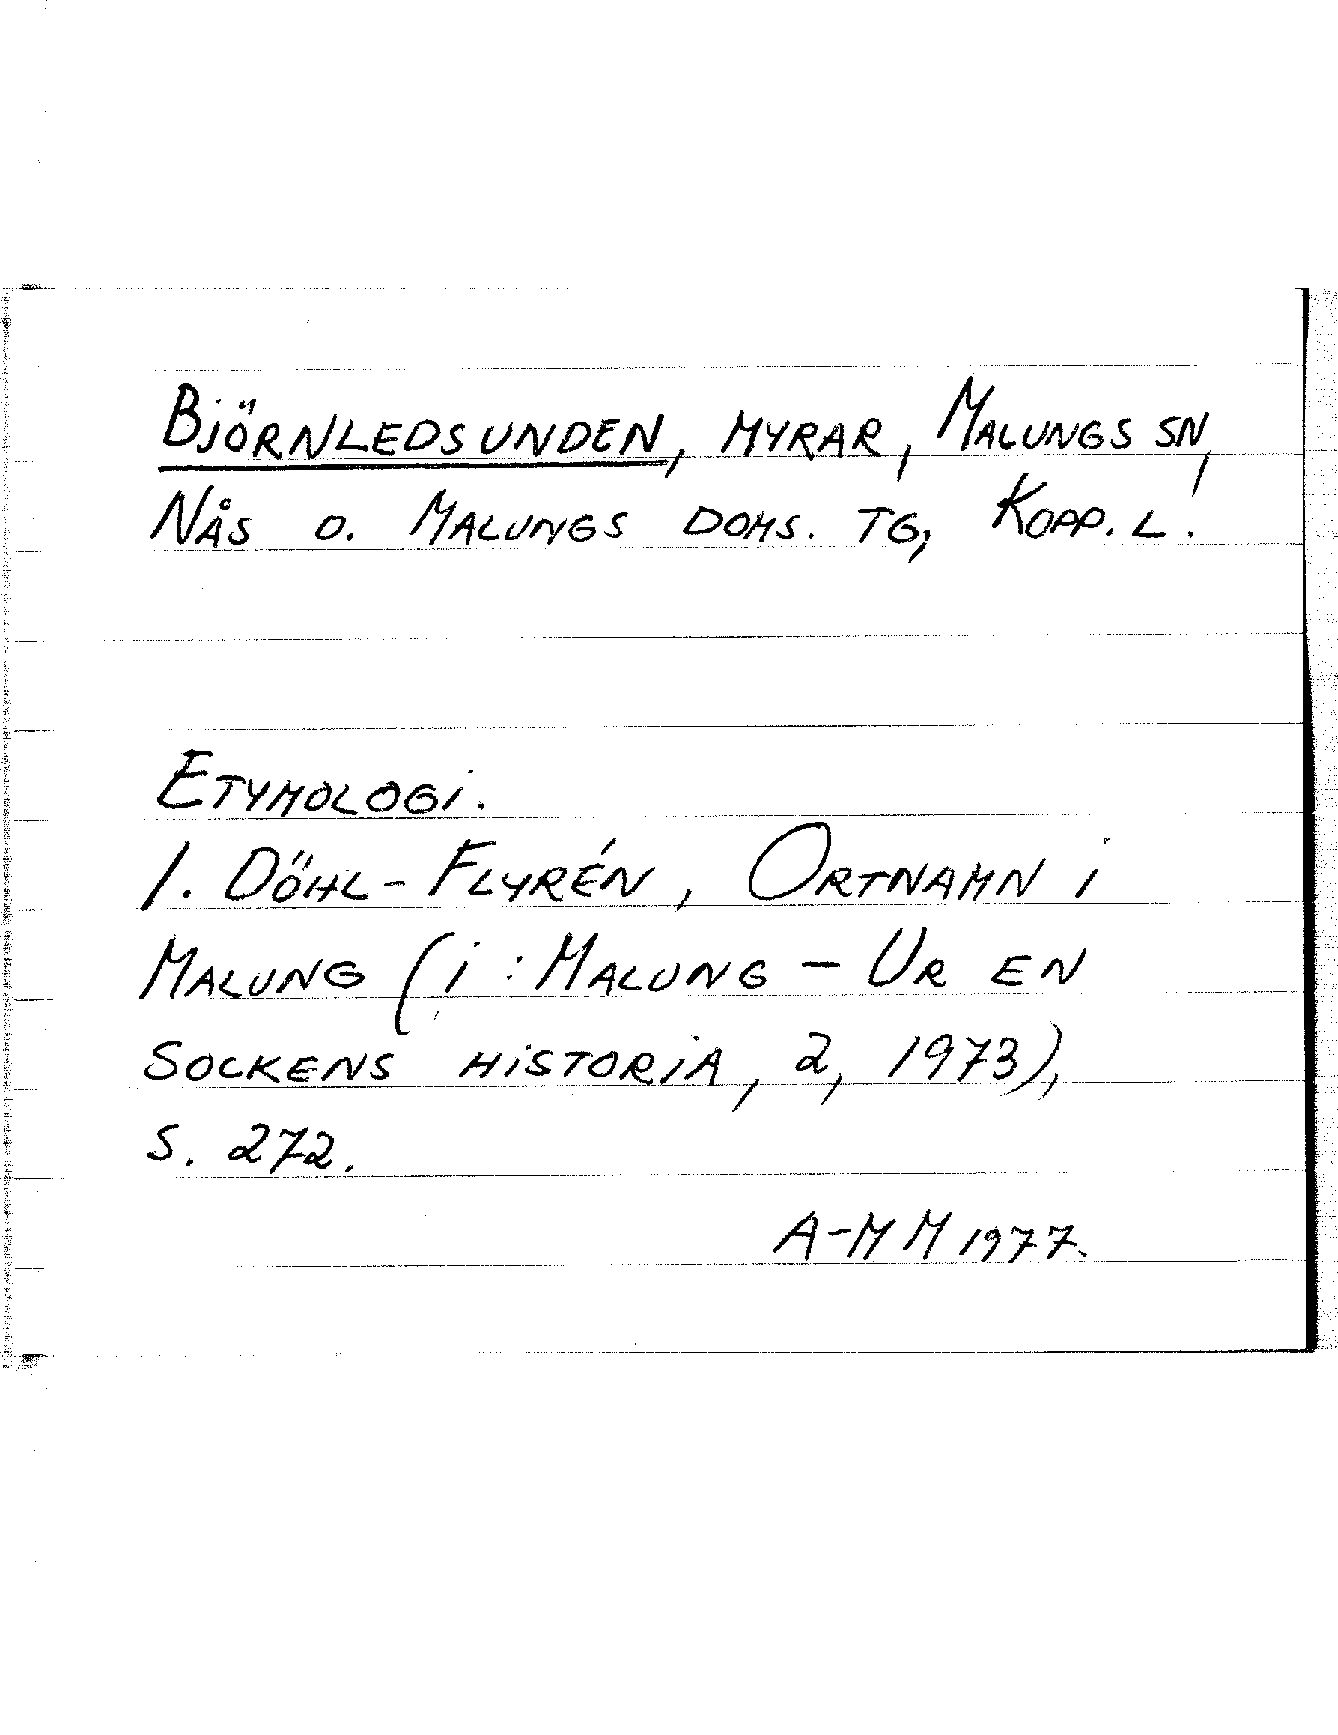 Björnledsunden, myrar, Malungs sn,
Nås o. Malungs doms. tg, Kopp. l.
Etymologi.
I. Döhl-Flyrén, Ortnamn i
Malung (i: Malung – Ur en
sockens historia, 2, 1973),
s. 272.
A-M M 1977.